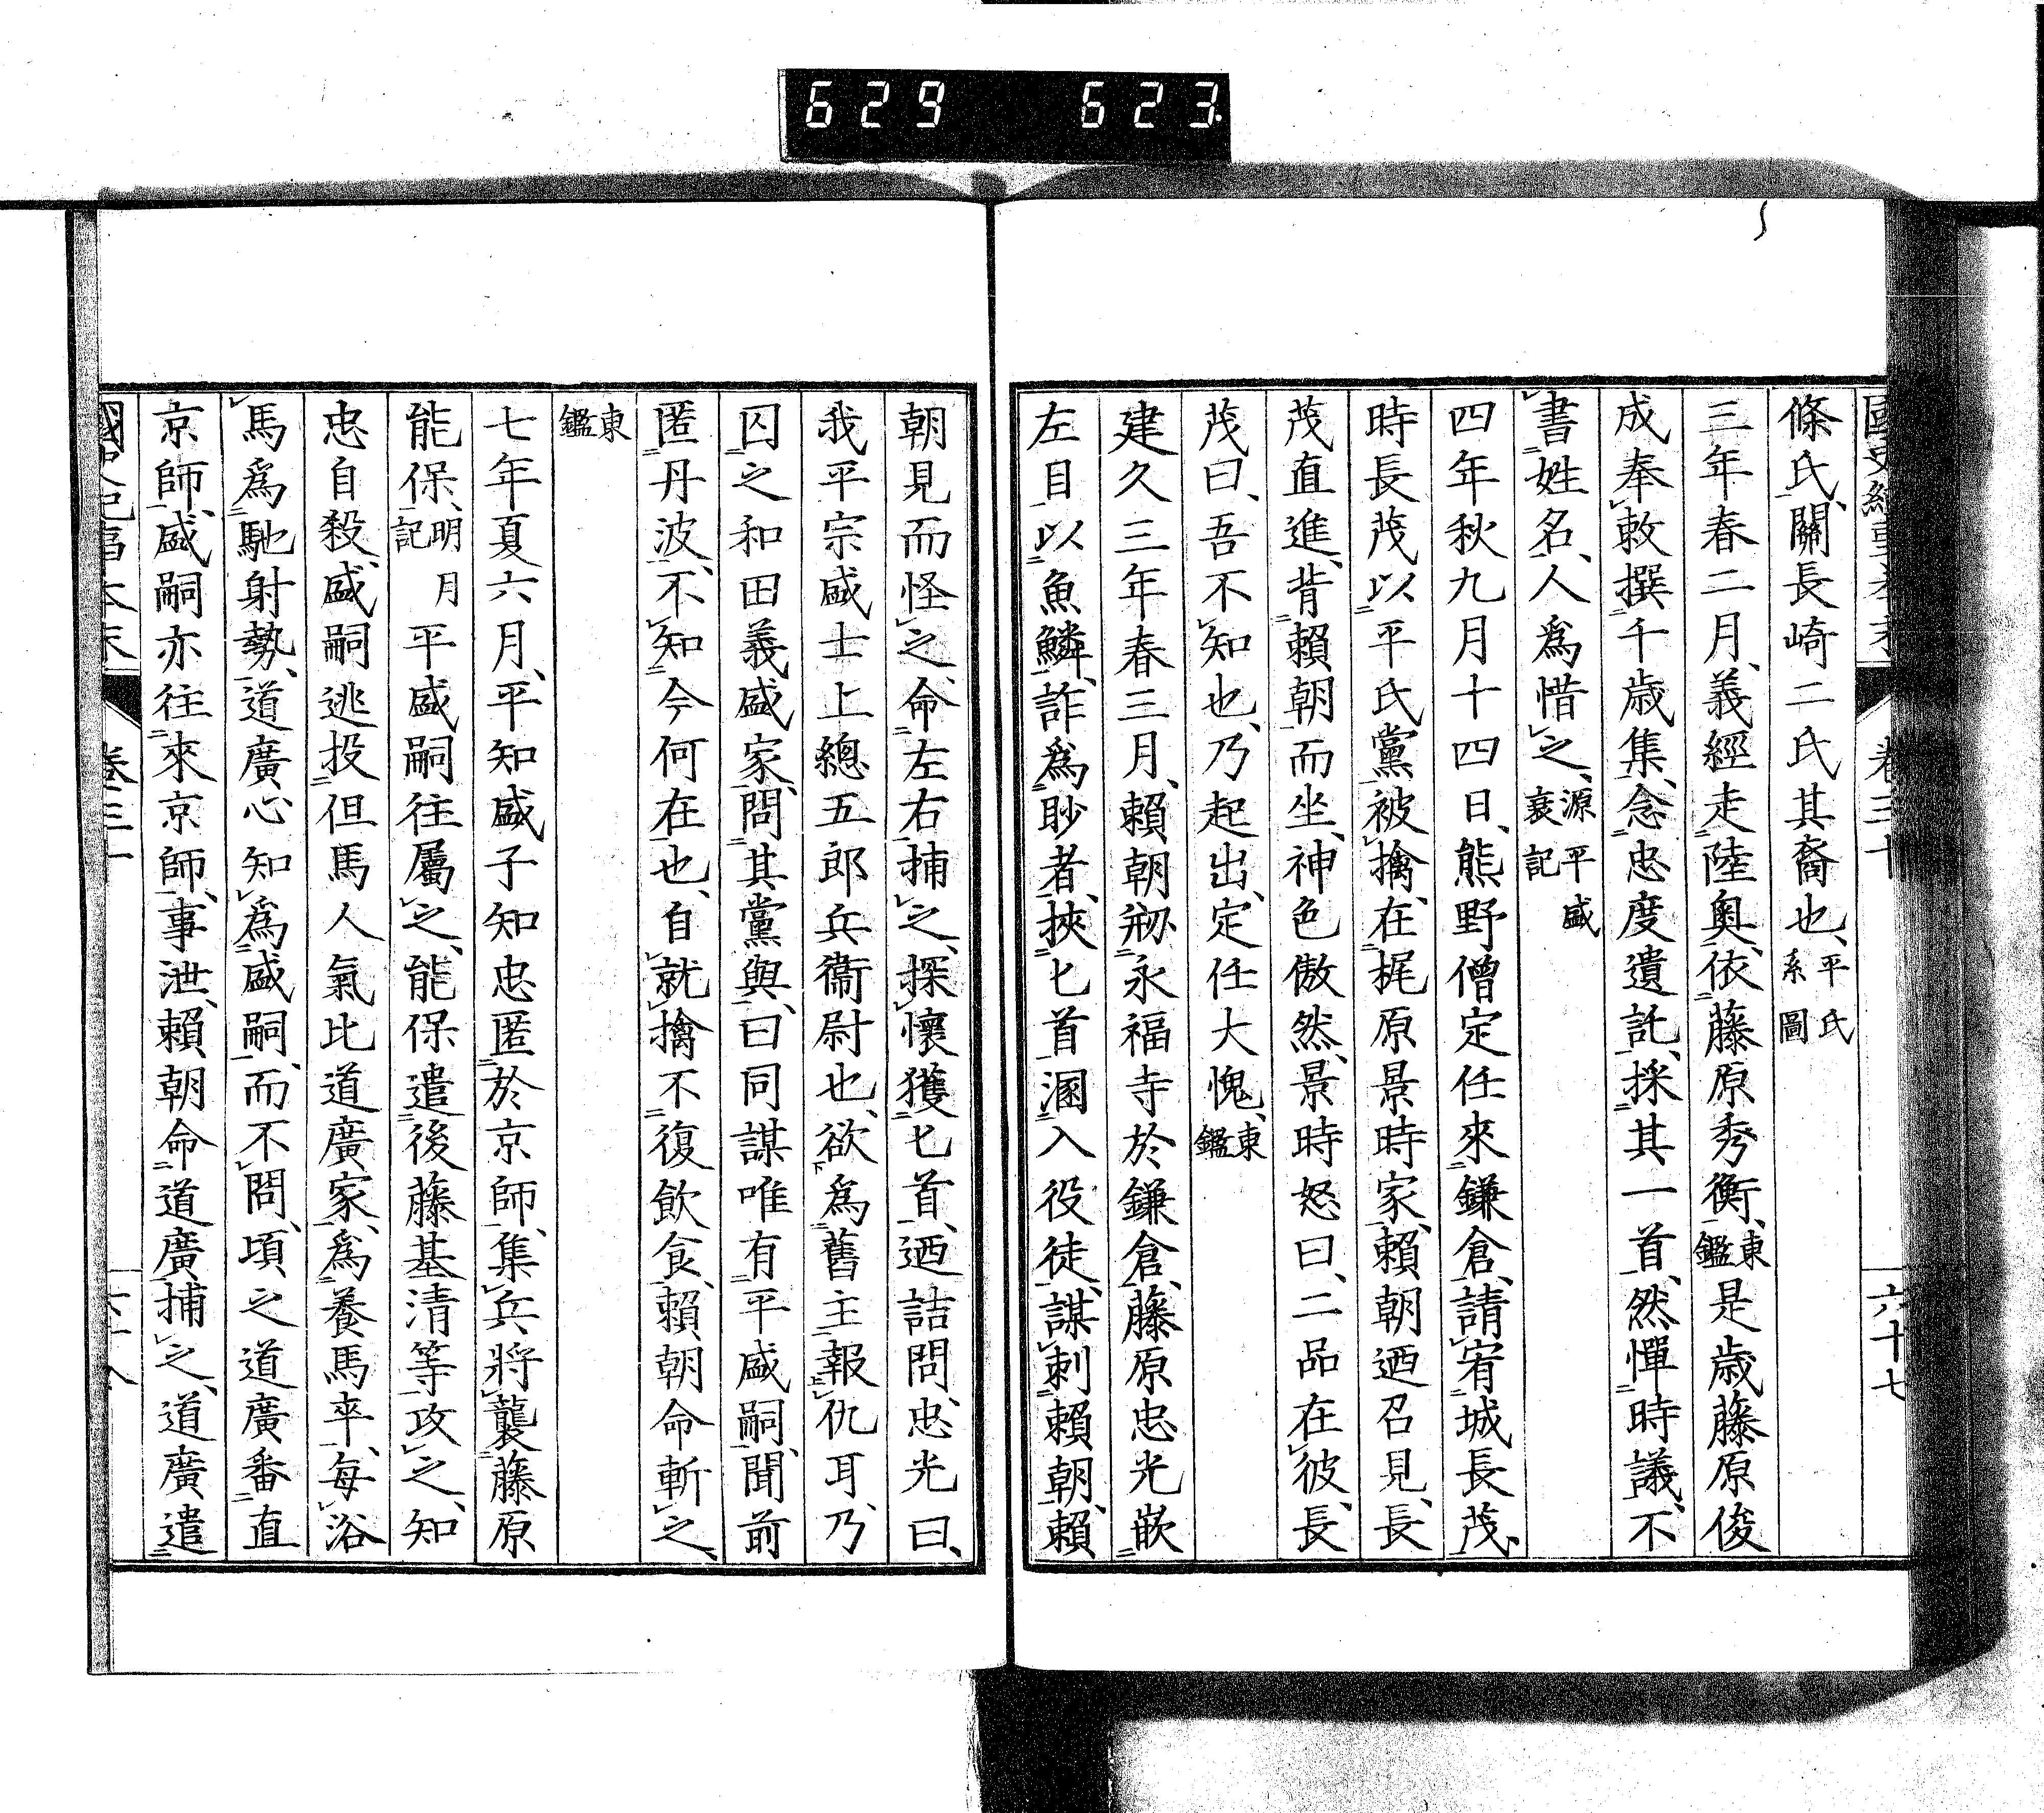 629 623
卷三十
六十七
條氏、關長崎二氏其裔也、平氏系圖
三年春二月、義經走陸奧、依藤原秀衡、東鑑是歲藤原俊
成奉敕撰千歲集、念忠度遺託、採其一首、然憚時議、不
書姓名、人爲惜之、源平盛衰記
四年秋九月十四日、熊野僧定任來鎌倉、請宥城長茂、
時長茂以平氏黨被擒、在梶原景時家、賴朝迺召見、長
茂直進、背賴朝而坐、神色傲然、景時怒曰、二品在彼、長
茂曰、吾不知也、乃起出、定任大愧、東鑑
建久三年春三月、賴朝剏永福寺於鎌倉、藤原忠光嵌
左目以魚鱗、詐爲眇者、挾匕首溷入役徒、謀刺賴朝、賴
朝見而怪之、命左右捕之、探懷獲匕首、迺詰問、忠光曰、
我平宗盛士上總五郎兵衞尉也、欲爲舊主報仇耳、乃
囚之和田義盛家、問其黨與、曰同謀唯有平盛嗣、聞前
匿丹波、不知今何在也、自就擒不復飮食、賴朝命斬之、
東鑑
七年夏六月、平知盛子知忠匿於京師、集兵將襲藤原
能保、明月記平盛嗣往屬之、能保遣後藤基清等攻之、知
忠自殺、盛嗣逃投但馬人氣比道廣家、爲養馬卒、每浴
馬爲馳射勢、道廣心知爲盛嗣、而不問、頃之道廣番直
京師、盛嗣亦往來京師、事泄、賴朝命道廣捕之、道廣遣